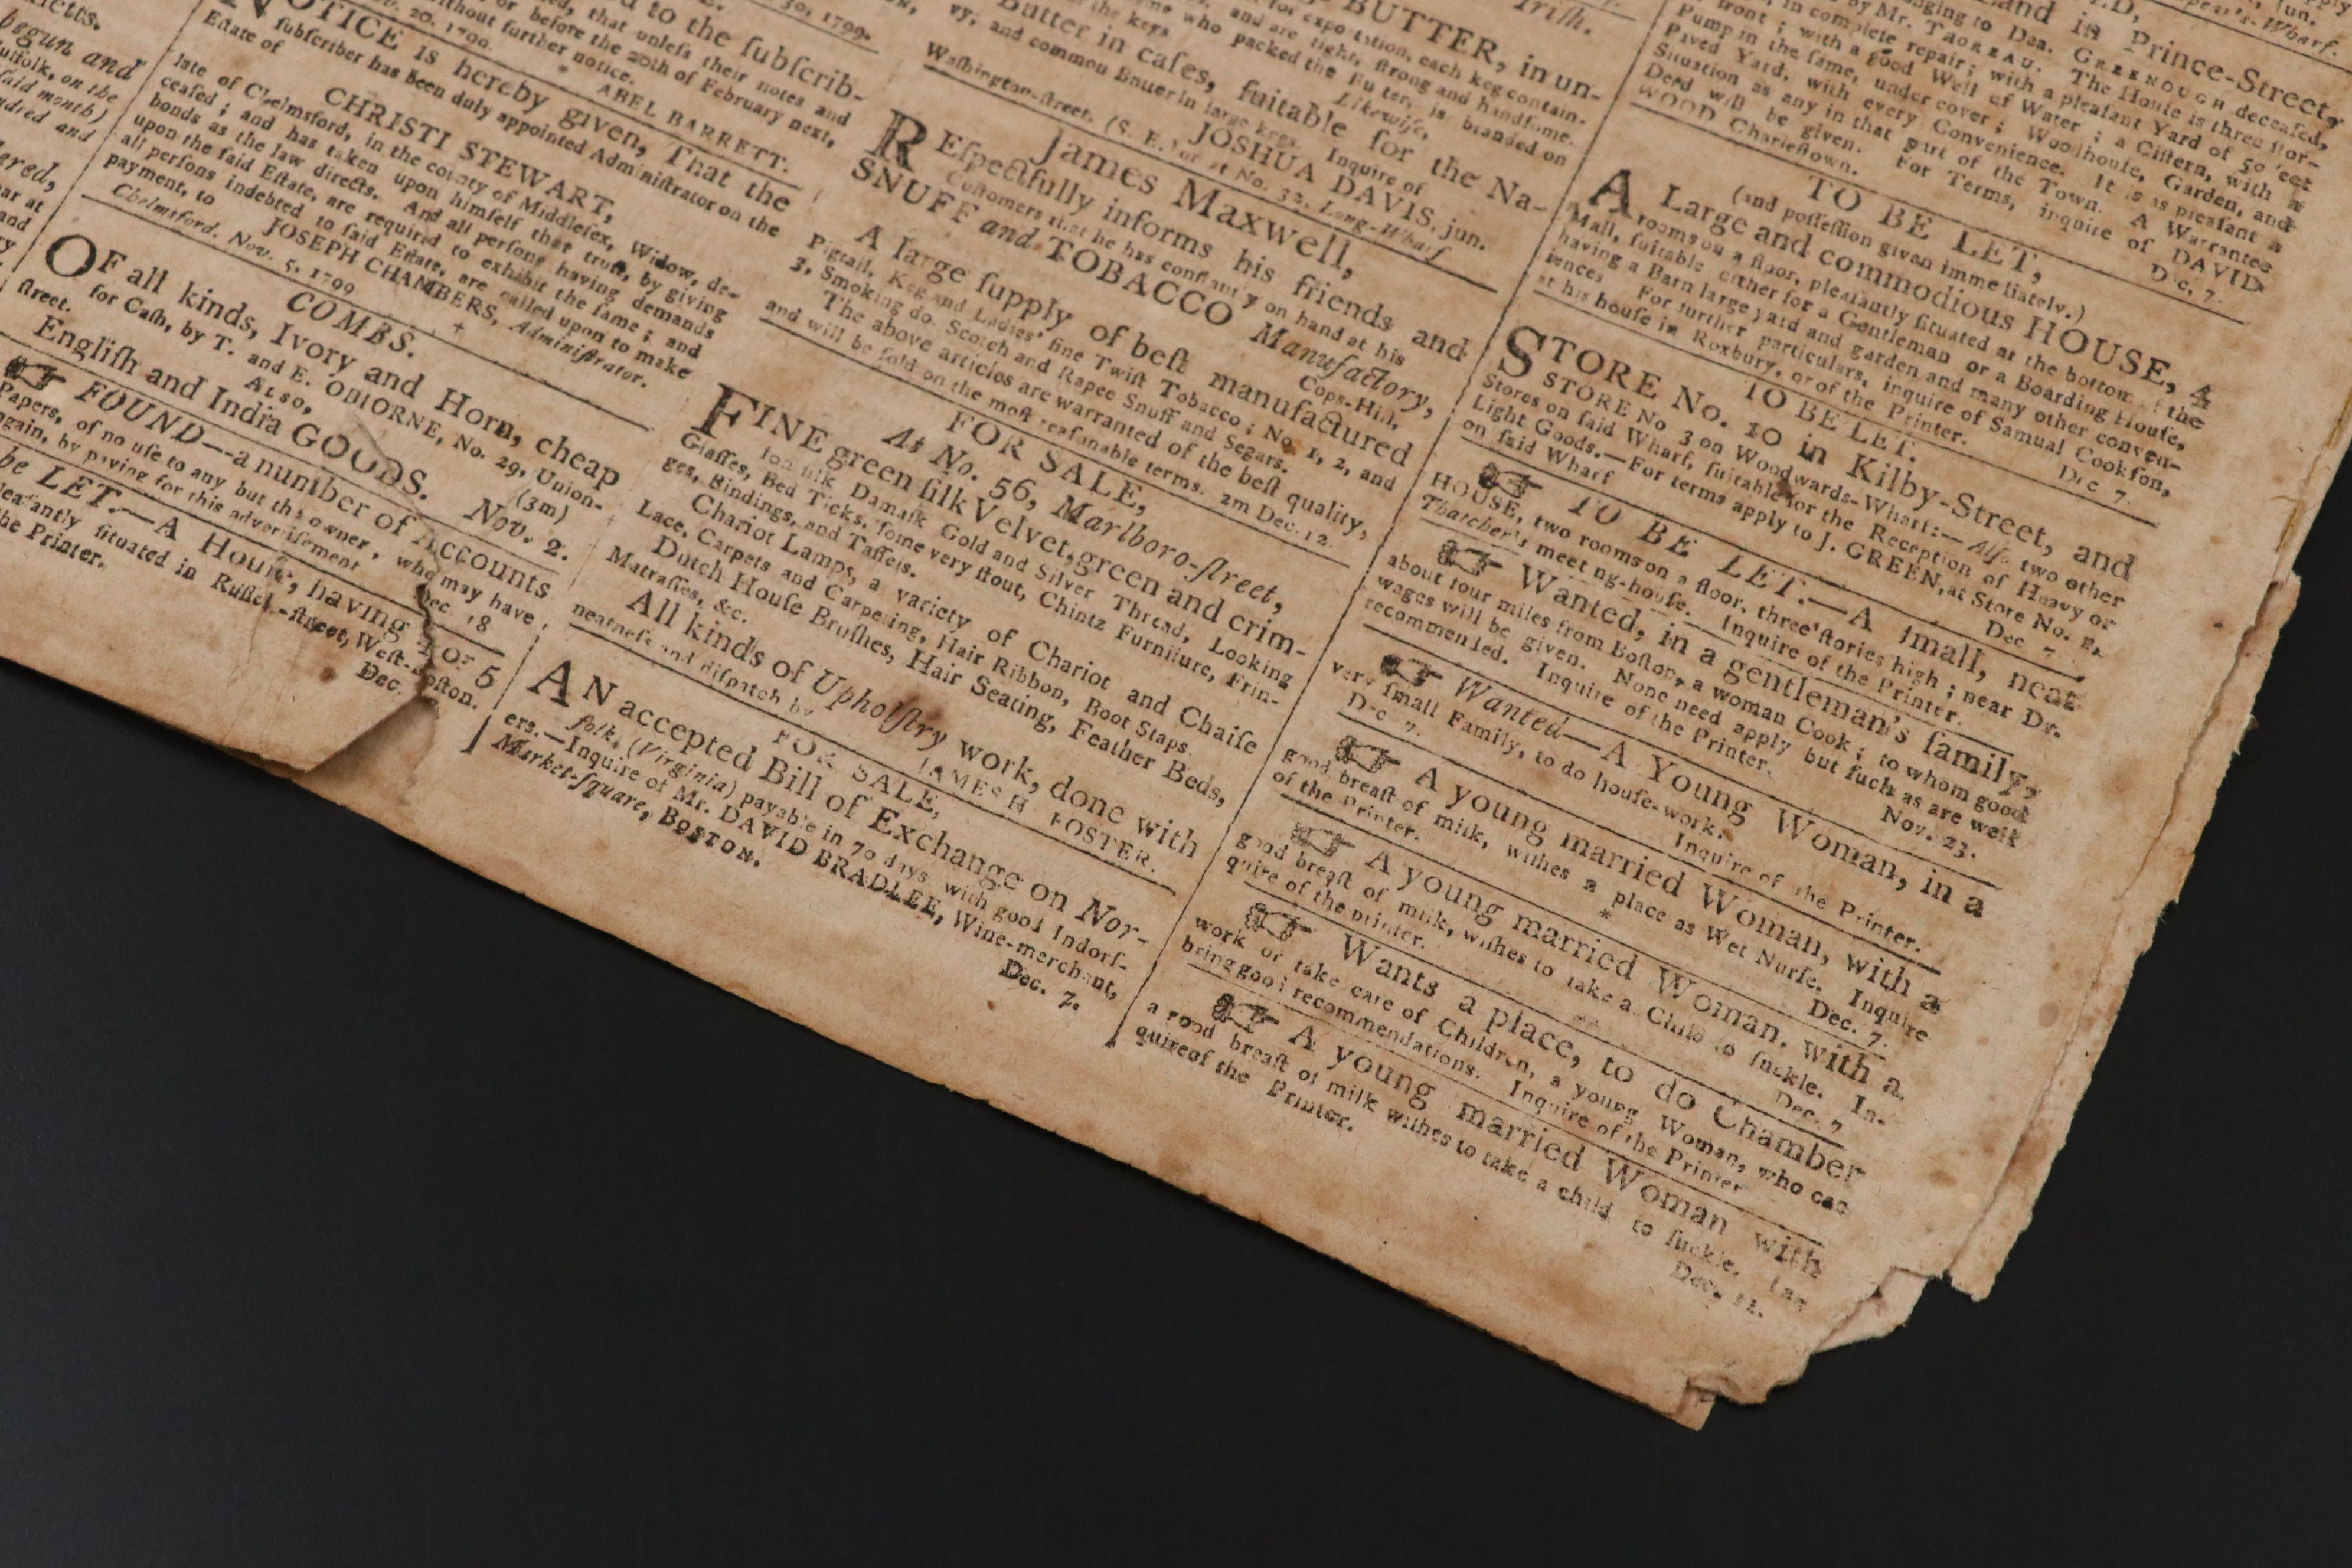 ricts.
begun and
uffolk, on the
said month)
ndred and
ered,
and
d to the ſubſcrib-
ed, that unleſs their notes and
or before the 20th of February next,
ithout further notice.
ABEL BARRETT.
Nov. 20. 1799.
NOTICE is hereby given, That the
ſubſcriber has been duly appointed Adminiſtrator on the
Eſtate of
CHRISTI STEWART,
late of Chelmsford, in the county of Middleſex, Widow, de-
ceaſed ; and has taken upon himſelf that truſt, by giving
bonds as the law directs. And all perſons having demands
upon the ſaid Eſtate, are required to exhibit the ſame ; and
all perſons indebted to ſaid Eſtate, are called upon to make
payment, to
JOSEPH CHAMBERS, Adminiſtrator.
Chelmsford, Nov. 5, 1799
COMBS.
OF all kinds, Ivory and Horn, cheap
for Caſh, by T. and E. ODIORNE, No. 29, Union-
ſtreet.
(3m)
ALSO,
Engliſh and India GOODS. Nov. 2.
☞ FOUND—a number of Accounts
Papers, of no uſe to any but the owner, who may have
again, by paying for this advertiſement Dec. 18
be LET.—A Houſe, having 4 or 5
leaſantly ſituated in Ruſſel-ſtreet, Weſt-Boſton.
he Printer. Dec.
30, 1799.
BUTTER, in un-
for exportation, each keg contain-
and are tight, ſtrong and handſome.
me who packed the Butter, is branded on
of the keys.
Likewiſe,
Butter in caſes, ſuitable for the Na-
vy, and common Butter in large kegs. Inquire of
JOSHUA DAVIS, jun.
Waſhington-ſtreet, (S. E.) or at No. 32, Long-Wharf
James Maxwell,
REſpectfully informs his friends and
Cuſtomers that he has conſtantly on hand at his
SNUFF and TOBACCO Manufactory,
Cops-Hill,
A large ſupply of beſt manufactured
Pigtail, Keg and Ladies' fine Twiſt Tobacco ; No. 1, 2, and
3, Smoking do. Scotch and Rapee Snuff and Segars.
The above articles are warranted of the beſt quality,
and will be ſold on the moſt reaſonable terms. 2m Dec. 12.
FOR SALE,
At No. 56, Marlboro-ſtreet,
FINE green ſilk Velvet, green and crim-
ſon ſilk Damaſk Gold and Silver Thread, Looking
Glaſſes, Bed Ticks, ſome very ſtout, Chintz Furniture, Frin-
ges, Bindings, and Taſſels.
Chariot Lamps, a variety of Chariot and Chaiſe
Lace, Carpets and Carpeting, Hair Ribbon, Boot Staps.
Dutch Houſe Bruſhes, Hair Seating, Feather Beds,
Matraſſes, &c.
All kinds of Upholſtry work, done with
neatneſs and diſpatch by
JAMES H FOSTER.
FOR SALE,
AN accepted Bill of Exchange on Nor-
folk, (Virginia) payable in 70 days with good Indorſ-
ers.—Inquire of Mr. DAVID BRADLEE, Wine-merchant,
Market-ſquare, BOSTON. Dec. 7.
Iriſh.
Spear's-Wharf.
land in Prince-Street,
belonging to Dea. GREENOUGH deceaſed,
by Mr. THOREAU. The Houſe is three ſtor-
in complete repair ; with a pleaſant Yard of 50 feet
front ; with a good Well of Water ; a Ciſtern, with a
Pump in the ſame, under cover ; Woodhouſe, Garden, and
Paved Yard, with every Convenience. It is as pleaſant a
Situation as any in that part of the Town. A Warrantee
Deed will be given. For Terms, inquire of DAVID
WOOD Charleſtown. Dec. 7.
TO BE LET,
(and poſſeſſion given immediately.)
A Large and commodious HOUSE, 4
rooms on a floor, pleaſantly ſituated at the bottom of the
Mall, ſuitable either for a Gentleman or a Boarding Houſe,
having a Barn large yard and garden and many other conven-
iences For further particulars, inquire of Samual Cookſon,
at his houſe in Roxbury, or of the Printer. Dec 7.
TO BE LET.
STORE No. 10 in Kilby-Street, and
STORE No 3 on Woodwards-Wharf:—Alſo two other
Stores on ſaid Wharf, ſuitable for the Reception of Heavy or
Light Goods.—For terms apply to J. GREEN, at Store No. 2,
on ſaid Wharf Dec 7
☞ TO BE LET.—A ſmall, neat
HOUSE, two rooms on a floor, three ſtories high ; near Dr.
Thatcher's meeting-houſe. Inquire of the Printer.
☞ Wanted, in a gentleman's family,
about four miles from Boſton, a woman Cook ; to whom good
wages will be given. None need apply but ſuch as are well
recommended. Inquire of the Printer. Nov. 23.
☞ Wanted—A Young Woman, in a
very ſmall Family, to do houſe-work. Inquire of the Printer.
Dec 7.
☞ A young married Woman, with a
good breaſt of milk, wiſhes a place as Wet Nurſe. Inquire
of the Printer. * Dec. 7.
☞ A young married Woman, with a
good breaſt of milk, wiſhes to take a Child to ſuckle. In-
quire of the printer. Dec. 7
☞ Wants a place, to do Chamber
work or take care of Children, a young Woman, who can
bring good recommendations. Inquire of the Printer
☞ A young married Woman with
a good breaſt of milk wiſhes to take a child to ſuckle. Inq
quire of the Printer. Dec. 11.